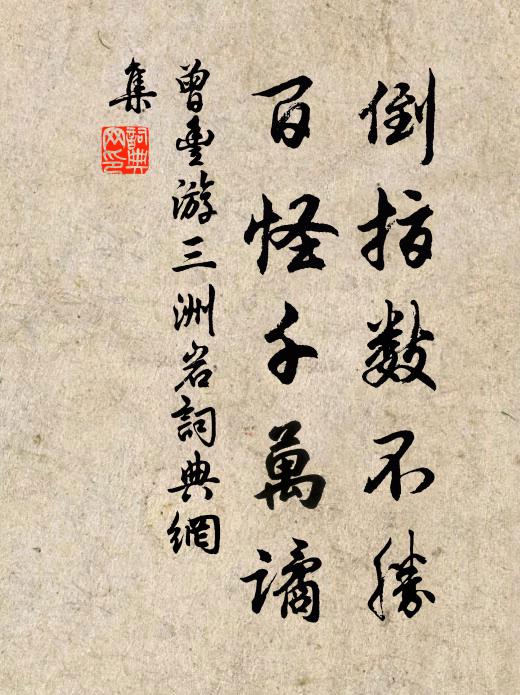 倒指数不勝
百怪千萬譎
曾豊游三洲岩詞典網
集
詞典網印